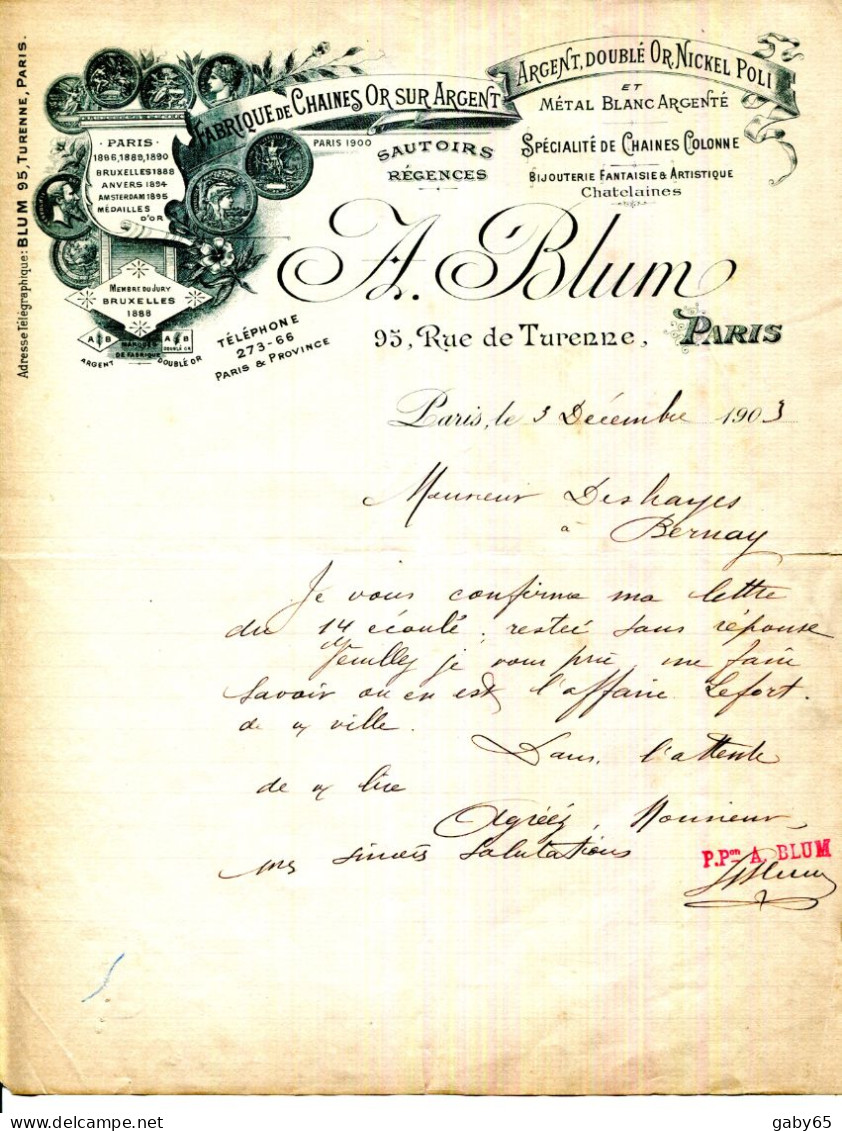 Adresse Télégraphique: BLUM 95, TURENNE, PARIS.
FABRIQUE DE CHAINES OR SUR ARGENT
ARGENT, DOUBLÉ OR, NICKEL POLI
ET
MÉTAL BLANC ARGENTÉ
PARIS 1900
SAUTOIRS
RÉGENCES
SPÉCIALITÉ DE CHAINES COLONNE
BIJOUTERIE FANTAISIE & ARTISTIQUE
Chatelaines
PARIS
1886, 1889, 1890
BRUXELLES 1888
ANVERS 1894
AMSTERDAM 1895
MÉDAILLES
D'OR
MEMBRE DU JURY
BRUXELLES
1888
A B
A B
DOUBLÉ OR
MARQUES
DE FABRIQUE
ARGENT
DOUBLÉ OR
TÉLÉPHONE
273-66
PARIS & PROVINCE
A. Blum
95, Rue de Turenne, PARIS
Paris, le 3 Décembre 1903
Monsieur Deshayes
à Bernay
Je vous confirme ma lettre
du 14 écoulé, restée sans réponse
Veuillez je vous prie, me faire
savoir ou en est l'affaire Lefort.
de ville.
Dans l'attente
de lire
Agréez, Monsieur,
mes sincères Salutations
P.Pon A. BLUM
gaby65